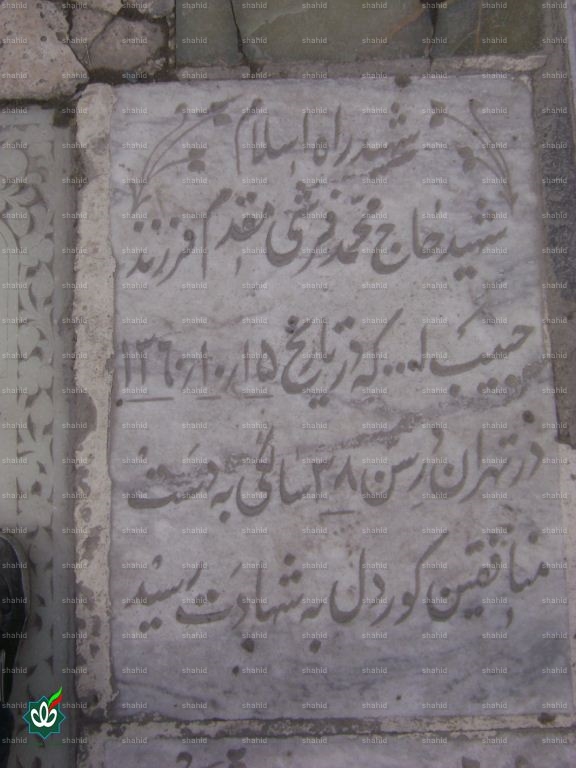 شهید راه اسلام
شهید حاج محمّد قرشی مقدم فرزند
حبیب ا... که در تاریخ ۱۳۶۰/۱۰/۱۵
در تهران در سن ۳۸ سالگی به دست
منافقین کور دل به شهادت رسید